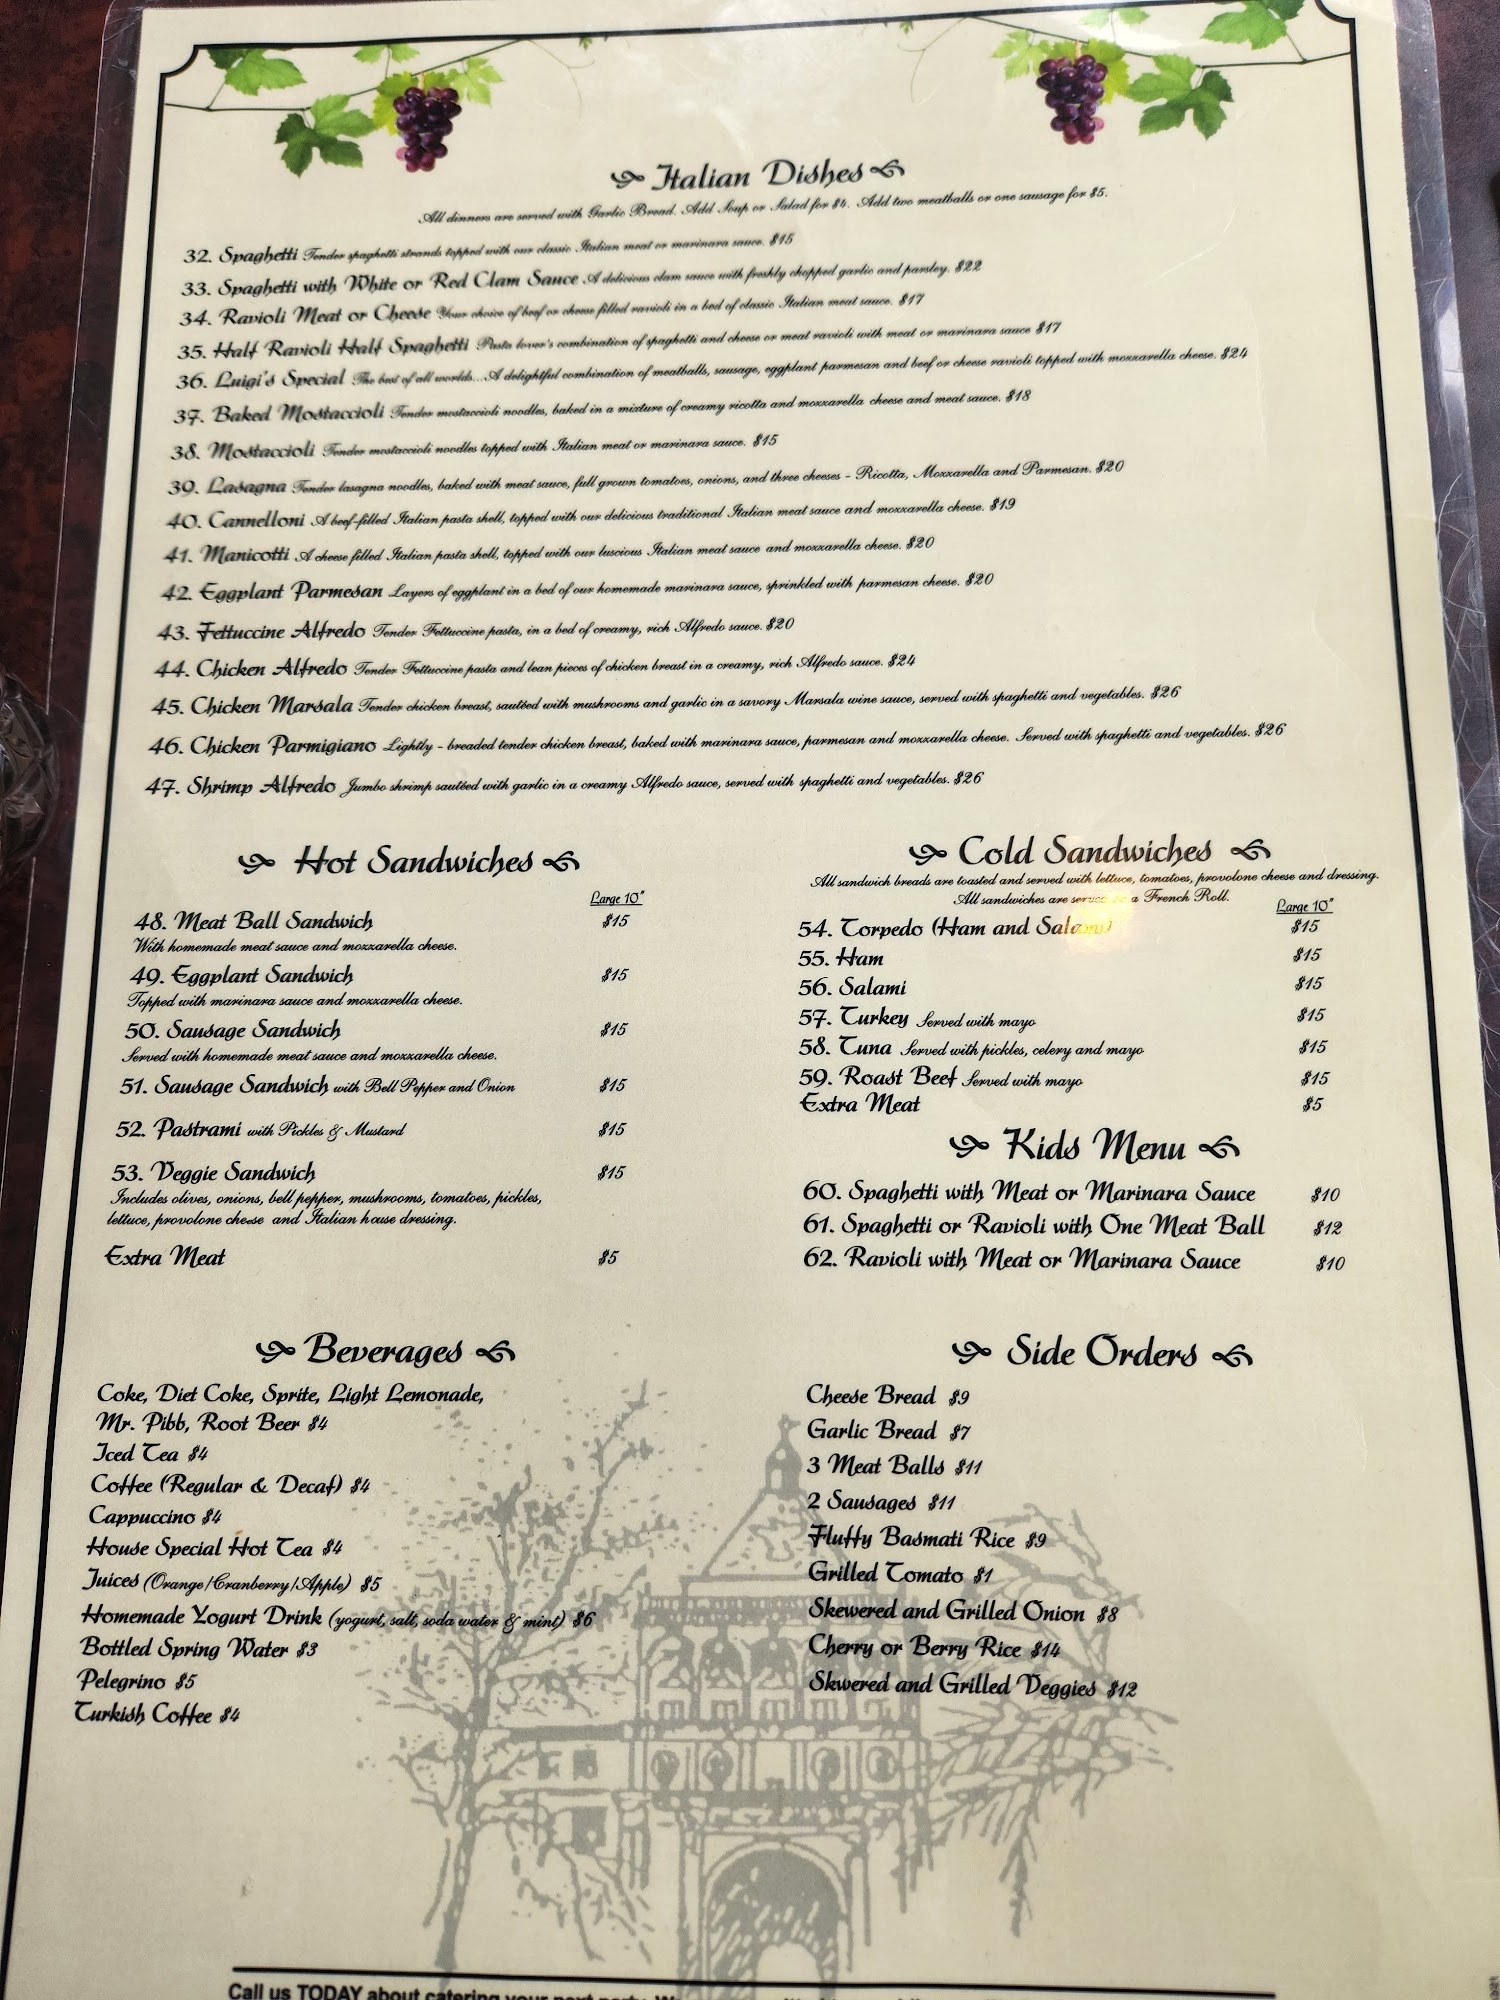 Italian Dishes
All dinners are served with Garlic Bread. Add Soup or Salad for $4. Add two meatballs or one sausage for $5.
32. Spaghetti Tender spaghetti strands topped with our classic Italian meat or marinara sauce. $15
33. Spaghetti with White or Red Clam Sauce A delicious clam sauce with freshly chopped garlic and parsley. $22
34. Ravioli Meat or Cheese Your choice of beef or cheese filled ravioli in a bed of classic Italian meat sauce. $17
35. Half Ravioli Half Spaghetti Pasta lover's combination of spaghetti and cheese or meat ravioli with meat or marinara sauce $17
36. Luigi's Special The best of all worlds...A delightful combination of meatballs, sausage, eggplant parmesan and beef or cheese ravioli topped with mozzarella cheese. $24
37. Baked Mostaccioli Tender mostaccioli noodles, baked in a mixture of creamy ricotta and mozzarella cheese and meat sauce. $18
38. Mostaccioli Tender mostaccioli noodles topped with Italian meat or marinara sauce. $15
39. Lasagna Tender lasagna noodles, baked with meat sauce, full grown tomatoes, onions, and three cheeses - Ricotta, Mozzarella and Parmesan. $20
40. Cannelloni A beef-filled Italian pasta shell, topped with our delicious traditional Italian meat sauce and mozzarella cheese. $19
41. Manicotti A cheese filled Italian pasta shell, topped with our luscious Italian meat sauce and mozzarella cheese. $20
42. Eggplant Parmesan Layers of eggplant in a bed of our homemade marinara sauce, sprinkled with parmesan cheese. $20
43. Fettuccine Alfredo Tender Fettuccine pasta, in a bed of creamy, rich Alfredo sauce. $20
44. Chicken Alfredo Tender Fettuccine pasta and lean pieces of chicken breast in a creamy, rich Alfredo sauce. $24
45. Chicken Marsala Tender chicken breast, sautéed with mushrooms and garlic in a savory Marsala wine sauce, served with spaghetti and vegetables. $26
46. Chicken Parmigiano Lightly - breaded tender chicken breast, baked with marinara sauce, parmesan and mozzarella cheese. Served with spaghetti and vegetables. $26
47. Shrimp Alfredo Jumbo shrimp sautéed with garlic in a creamy Alfredo sauce, served with spaghetti and vegetables. $26
Hot Sandwiches
Large 10"
48. Meat Ball Sandwich $15
With homemade meat sauce and mozzarella cheese.
49. Eggplant Sandwich $15
Topped with marinara sauce and mozzarella cheese.
50. Sausage Sandwich $15
Served with homemade meat sauce and mozzarella cheese.
51. Sausage Sandwich with Bell Pepper and Onion $15
52. Pastrami with Pickles & Mustard $15
53. Veggie Sandwich $15
Includes olives, onions, bell pepper, mushrooms, tomatoes, pickles,
lettuce, provolone cheese and Italian house dressing.
Extra Meat $5
Cold Sandwiches
All sandwich breads are toasted and served with lettuce, tomatoes, provolone cheese and dressing.
All sandwiches are a French Roll.
Large 10"
54. Torpedo (Ham and Salami) $15
55. Ham $15
56. Salami $15
57. Turkey Served with mayo $15
58. Tuna Served with pickles, celery and mayo $15
59. Roast Beef Served with mayo $15
Extra Meat $5
Kids Menu
60. Spaghetti with Meat or Marinara Sauce $10
61. Spaghetti or Ravioli with One Meat Ball $12
62. Ravioli with Meat or Marinara Sauce $10
Beverages
Coke, Diet Coke, Sprite, Light Lemonade,
Mr. Pibb, Root Beer $4
Iced Tea $4
Coffee (Regular & Decaf) $4
Cappuccino $4
House Special Hot Tea $4
Juices (Orange/Cranberry/Apple) $5
Homemade Yogurt Drink (yogurt, salt, soda water & mint) $6
Bottled Spring Water $3
Pelegrino $5
Turkish Coffee $4
Side Orders
Cheese Bread $9
Garlic Bread $7
3 Meat Balls $11
2 Sausages $11
Fluffy Basmati Rice $9
Grilled Tomato $1
Skewered and Grilled Onion $8
Cherry or Berry Rice $14
Skwered and Grilled Veggies $12
Call us TODAY about catering your next party.